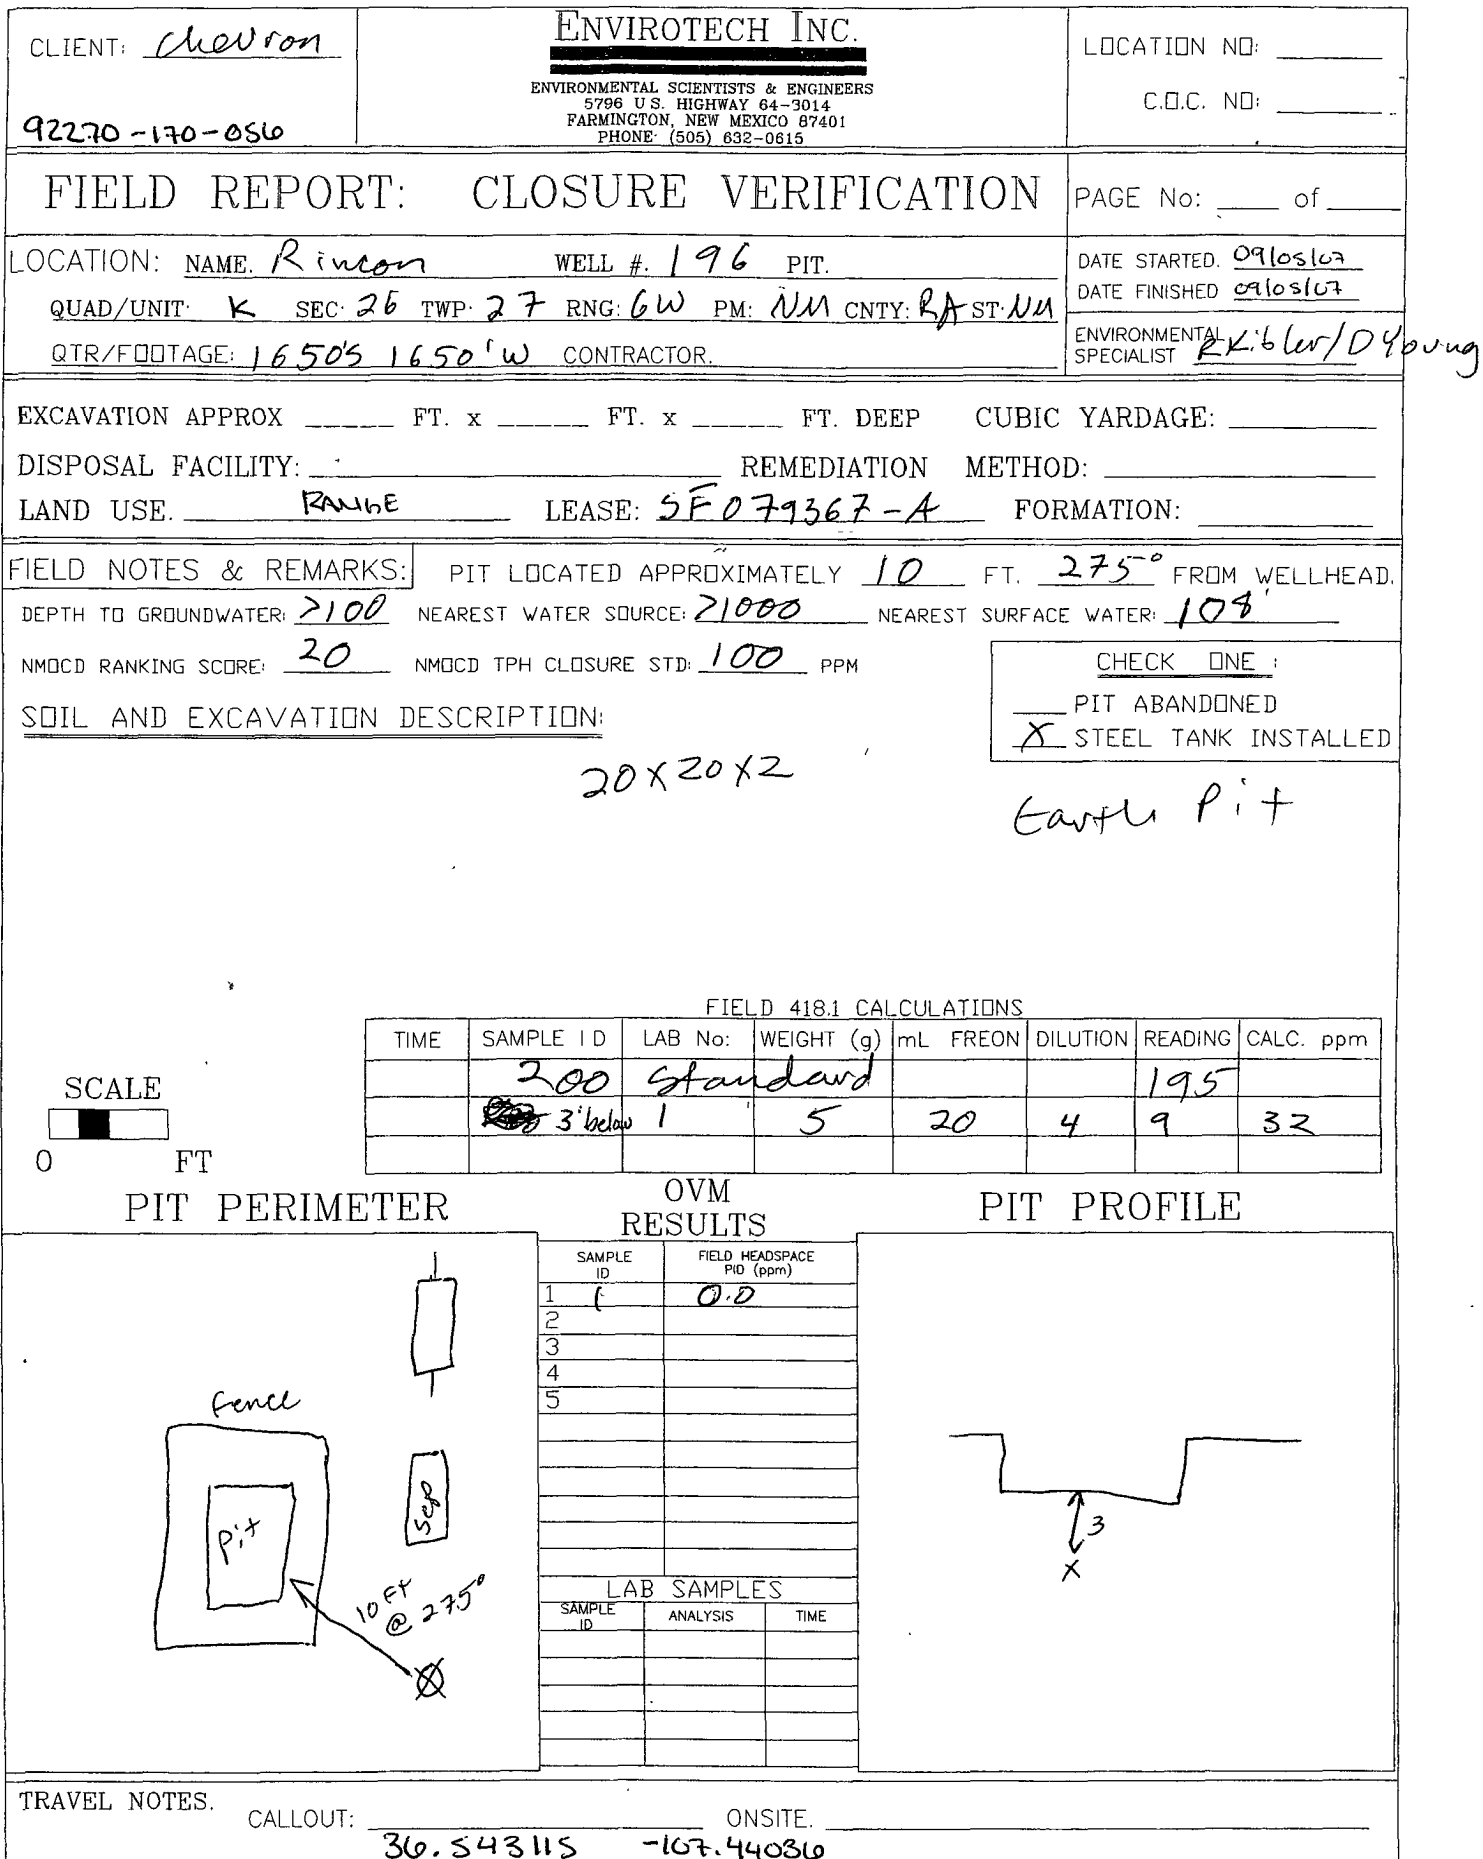 CLIENT: Chevron
92270-170-056
ENVIROTECH INC.
ENVIRONMENTAL SCIENTISTS & ENGINEERS
5796 U S. HIGHWAY 64-3014
FARMINGTON, NEW MEXICO 87401
PHONE: (505) 632-0615
LOCATION NO:
C.O.C. NO:
FIELD REPORT: CLOSURE VERIFICATION
PAGE No: ____ of ____
LOCATION: NAME. Rincon WELL #. 196 PIT.
QUAD/UNIT: K SEC: 26 TWP: 27 RNG: 6W PM: NM CNTY: RA ST: NM
QTR/FOOTAGE: 1650'S 1650'W CONTRACTOR.
DATE STARTED. 09/05/07
DATE FINISHED 09/05/07
ENVIRONMENTAL
SPECIALIST R Kibler/D Young
EXCAVATION APPROX _____ FT. x _____ FT. x _____ FT. DEEP CUBIC YARDAGE:
DISPOSAL FACILITY: REMEDIATION METHOD:
LAND USE. RANGE LEASE: SF079367-A FORMATION:
FIELD NOTES & REMARKS: PIT LOCATED APPROXIMATELY 10 FT. 275° FROM WELLHEAD.
DEPTH TO GROUNDWATER: >100 NEAREST WATER SOURCE: >1000 NEAREST SURFACE WATER: 108'
NMOCD RANKING SCORE: 20 NMOCD TPH CLOSURE STD: 100 PPM
CHECK ONE :
PIT ABANDONED
X STEEL TANK INSTALLED
SOIL AND EXCAVATION DESCRIPTION:
20 X 20 X 2
Earth Pit
FIELD 418.1 CALCULATIONS
TIME SAMPLE I D LAB No: WEIGHT (g) mL FREON DILUTION READING CALC. ppm
200 Standard 195
3' below 1 5 20 4 9 32
SCALE
0 FT
PIT PERIMETER
OVM
RESULTS
PIT PROFILE
SAMPLE
ID
FIELD HEADSPACE
PID (ppm)
1 1 0.0
2
3
4
5
Fence
Pit
Sep
10 FT
@ 275°
3
X
LAB SAMPLES
SAMPLE
ID
ANALYSIS
TIME
TRAVEL NOTES.
CALLOUT: ONSITE.
36.543115 -107.44036